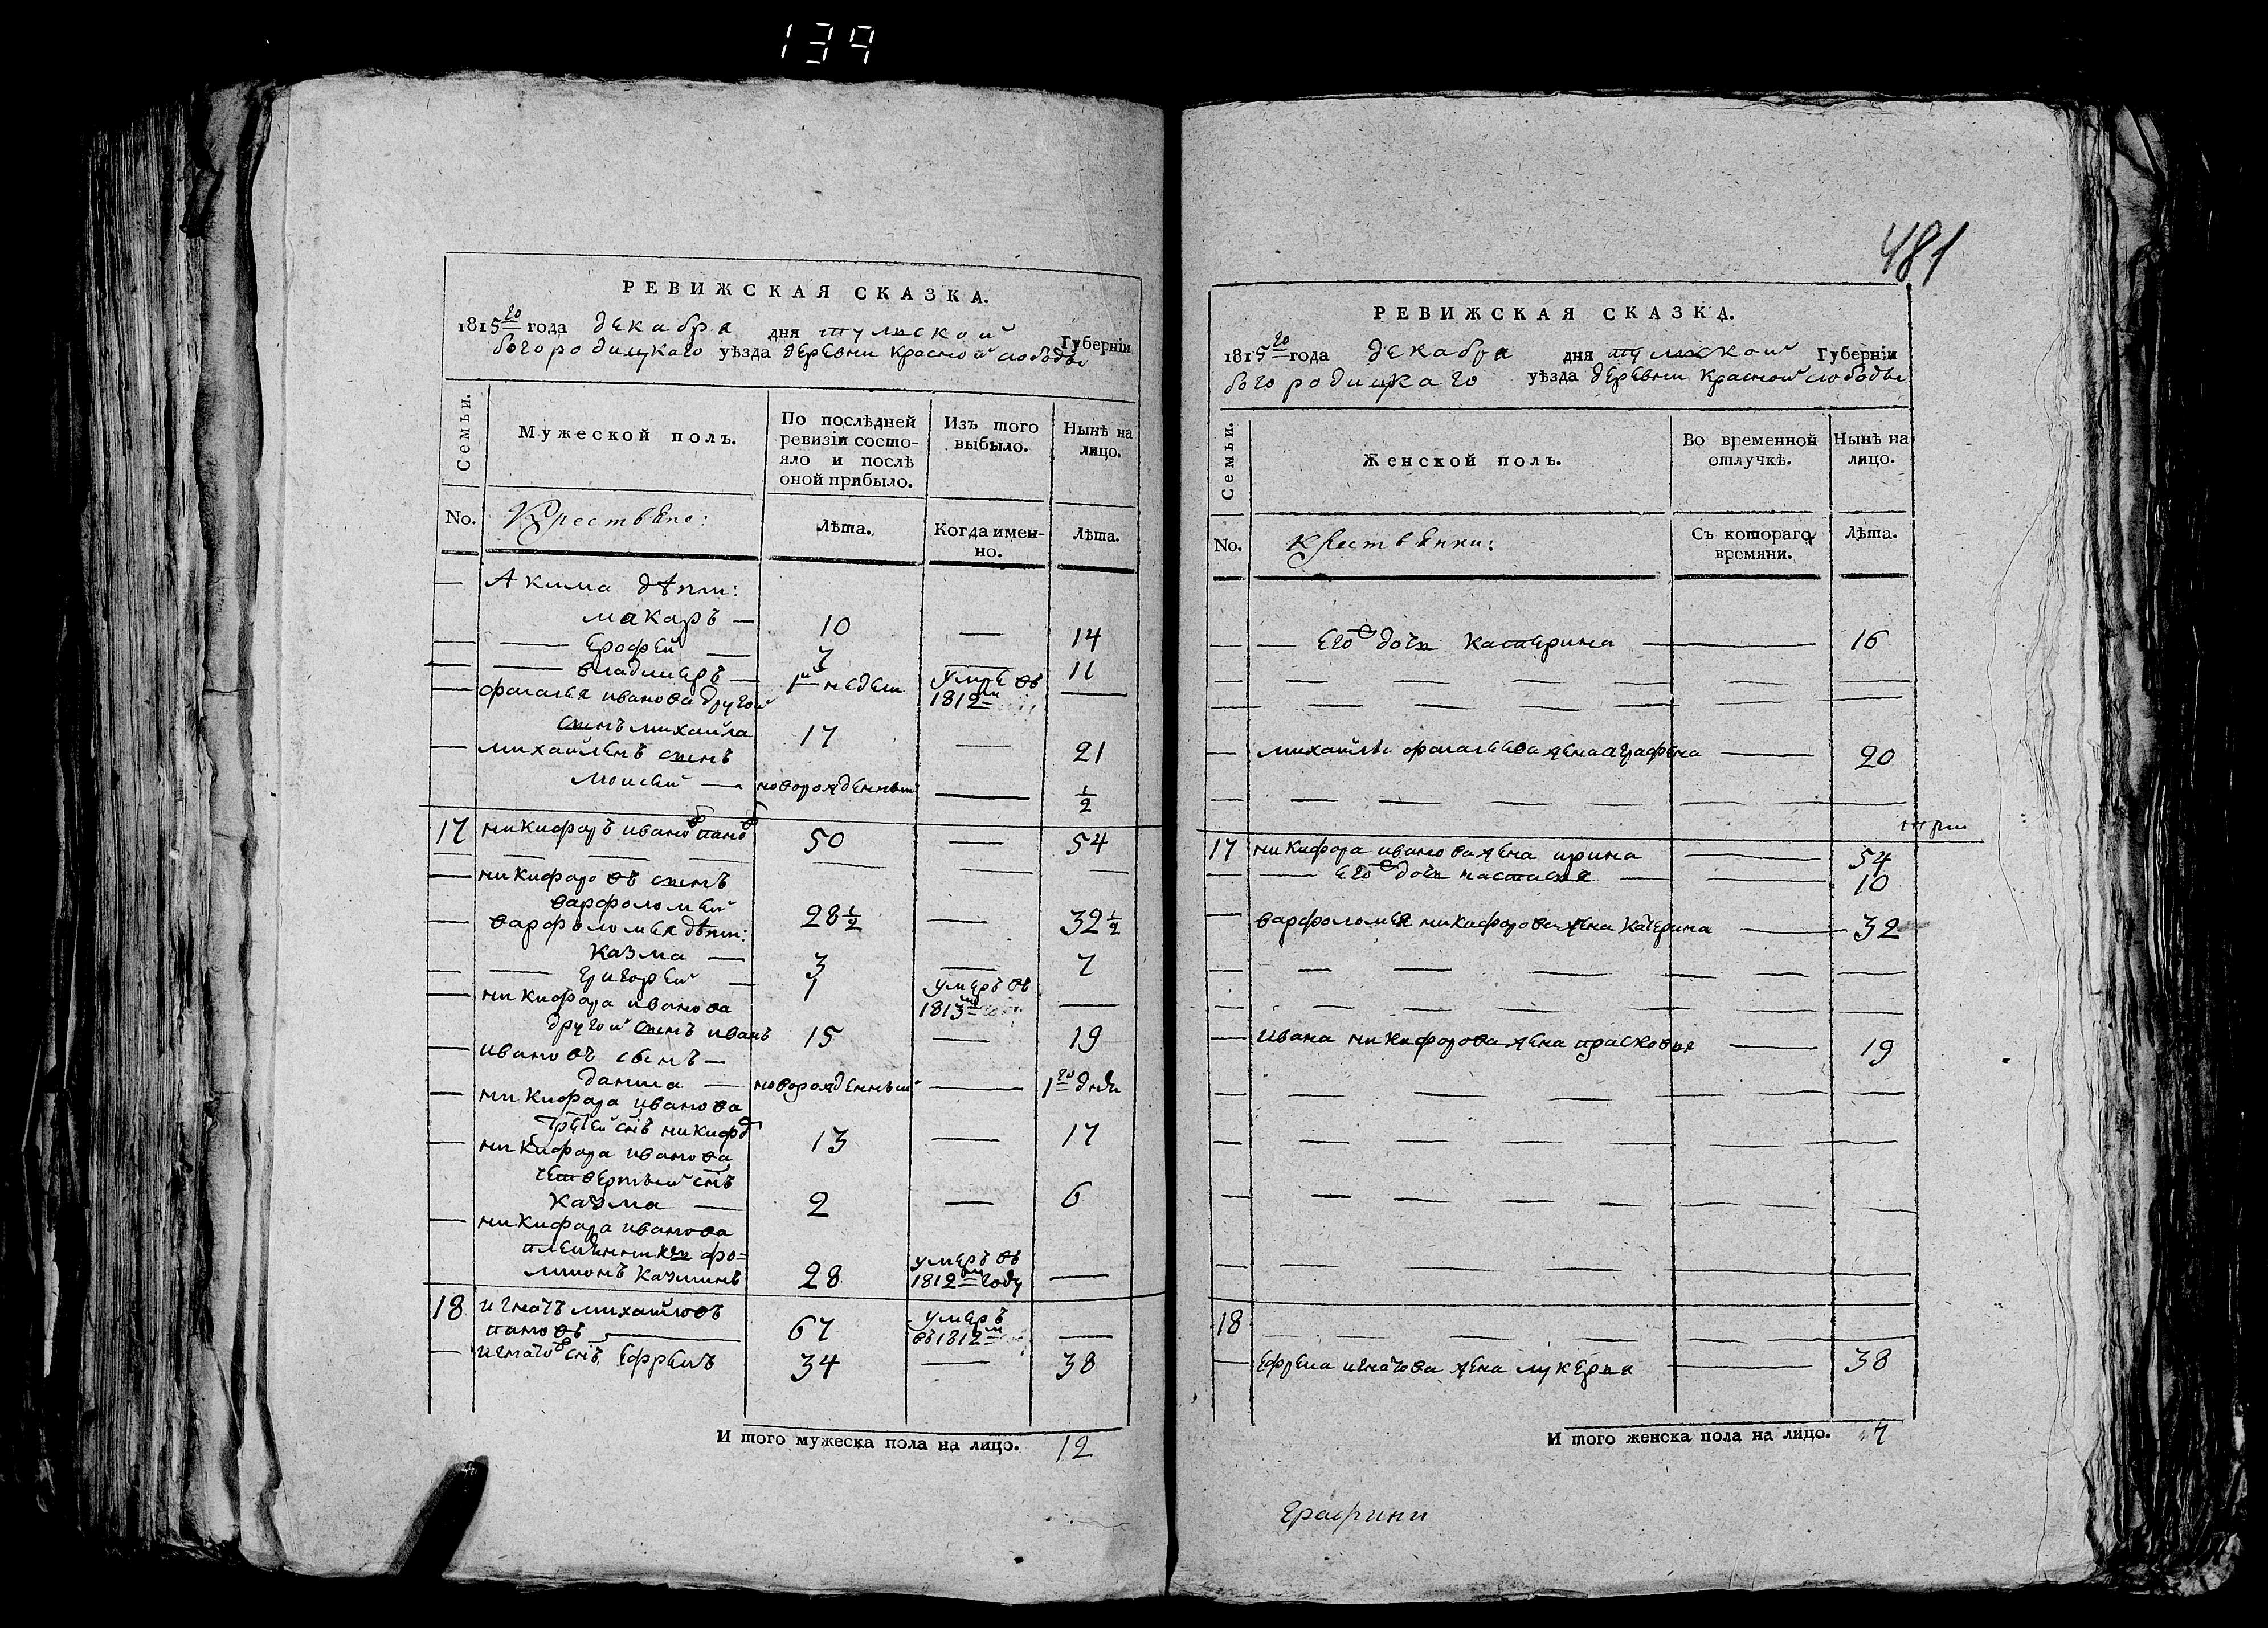 139
РЕВИЖСКАЯ СКАЗКА.
1815го года декабря дня тульской Губерніи
богородицкаго уѣзда деревни Красной слободы
Семьи.
Мужеской полъ.
По послѣдней ревизіи состо-
яло и послѣ
оной прибыло.
Изъ того
выбыло.
Нынѣ на
лицо.
No.
Крестьяне:
Лѣта.
Когда имен-
но.
Лѣта.
— Акима дѣти:
макаръ — 10 — 14
— — Ерофей — 7 — 11
— — владимеръ — 1й недели умре въ 1812м —
— фаталея иванова другой
сынъ михайла 17 — 21
— михайленъ сынъ
моисей — новорожденный — ½
17 никифоръ ивановъ пановъ 50 — 54
— — — — — — —
— никифоровъ сынъ
варфоломей 28½ — 32½
— варфоломея дѣти:
Казма — 3 — 7
— — григорей — 1 умеръ въ 1813м —
— никифора иванова
другой сынъ иванъ 15 — 19
— ивановъ сынъ —
данила — новорожденный — 1го дня
— никифора иванова
третей снъ никифоръ 13 — 17
— никифора иванова
четвертый снъ
Казма — 2 — 6
— никифора иванова
племянникъ фи=
липонъ Казминъ 28 умеръ въ 1812м году —
18 игнатъ михайловъ
пановъ — 67 умеръ въ 1812м —
— игнатовъ снъ Ефремъ 34 — 38
И того мужеска пола на лицо. 12
481
РЕВИЖСКАЯ СКАЗКА.
1815го года декабря дня тульской Губерніи
богородицкаго уѣзда деревни Красной слободы
Семьи.
Женской полъ.
Во временной
отлучкѣ.
Нынѣ на
лицо.
No.
Крестьянки:
Съ котораго
времяни.
Лѣта.
— — его дочь катерина — 16
— михайлы фаталеева жена аграфена — 20
17 никифора иванова жена ирина — 54
— — его дочь настасья — — 10
— варфоломея никифорова жена Катерина — 32
— ивана никифорова жена прасковья — 19
18
— Ефрема игнатова жена лукерья — 38
И того женска пола на лицо. 7